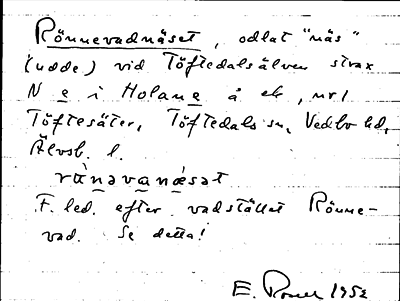 Rönnevadnäset, odlat "näs"
(udde) vid Töftedalsälven strax
N e i Holane å ek, nr 1
Töftesäter, Töftedals sn, Vedbo hd,
Älvsb. l.
F. led. efter vadstället Rönne-
vad. Se detta!
E. 1952